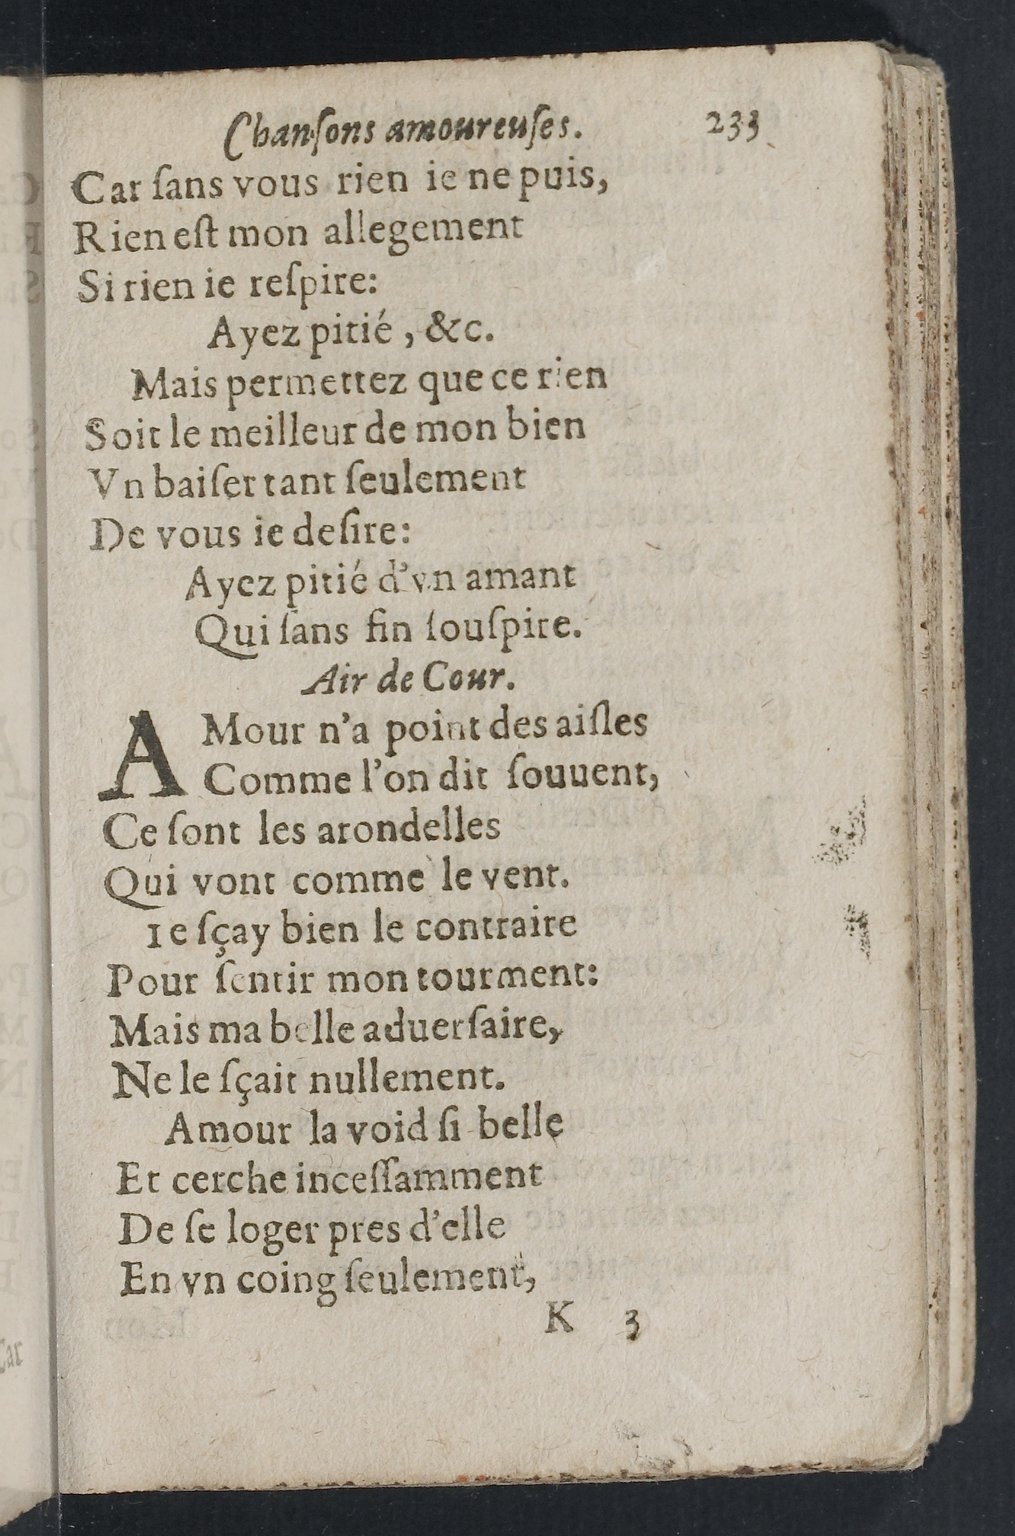 Chanſons amoureuſes. 233
Car ſans vous rien ie ne puis,
Rien eſt mon allegement
Si rien ie reſpire:
Ayez pitié, &c.
Mais permettez que ce rien
Soit le meilleur de mon bien
Vn baiſer tant ſeulement
De vous ie deſire:
Ayez pitié d'vn amant
Qui ſans fin ſouſpire.
Air de Cour.
AMour n'a point des aiſles
Comme l'on dit ſouuent,
Ce ſont les arondelles
Qui vont comme le vent.
Ie ſçay bien le contraire
Pour ſentir mon tourment:
Mais ma belle aduerſaire,
Ne le ſçait nullement.
Amour la void ſi belle
Et cerche inceſſamment
De ſe loger pres d'elle
En vn coing ſeulement,
K 3
Car